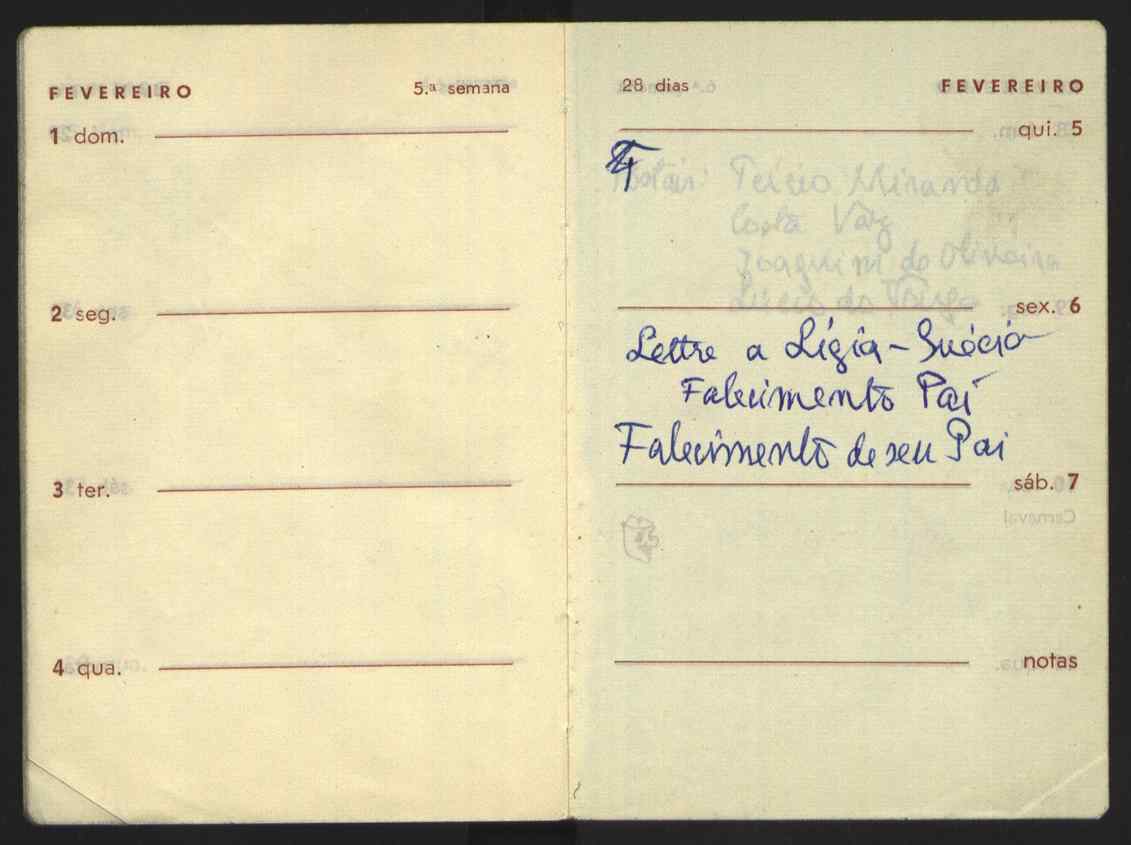 FEVEREIRO 5.ª semana
1 dom.
2 seg.
3 ter.
4 qua.
28 dias FEVEREIRO
qui. 5
Miranda
Costa Vaz
Joaquim de Oliveira
sex. 6
Lettre a Lígia - Suécia
Falecimento Pai
Falecimento de seu Pai
sáb. 7
Carnaval
notas